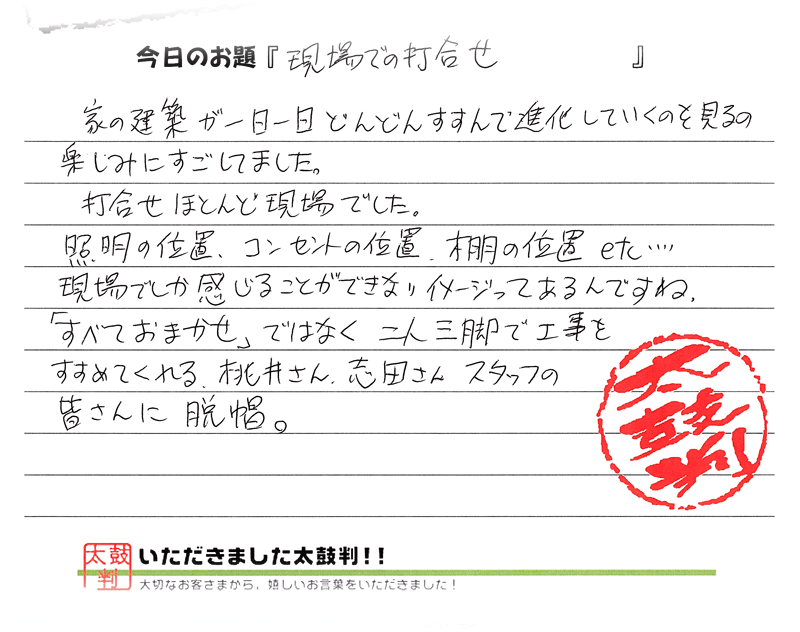 今日のお題『現場での打合せ』
家の建築が一日一日どんどんすすんで進化していくのを見るの
楽しみにすごしてました。
打合せほとんど現場でした。
照明の位置、コンセントの位置、棚の位置 etc....
現場でしか感じることができないイメージってあるんですね、
「すべておまかせ」ではなく 二人三脚で工事を
すすめてくれる、桃井さん、志田さん スタッフの
皆さんに 脱帽。
太鼓判
太鼓判
いただきました太鼓判!!
大切なお客さまから、嬉しいお言葉をいただきました！